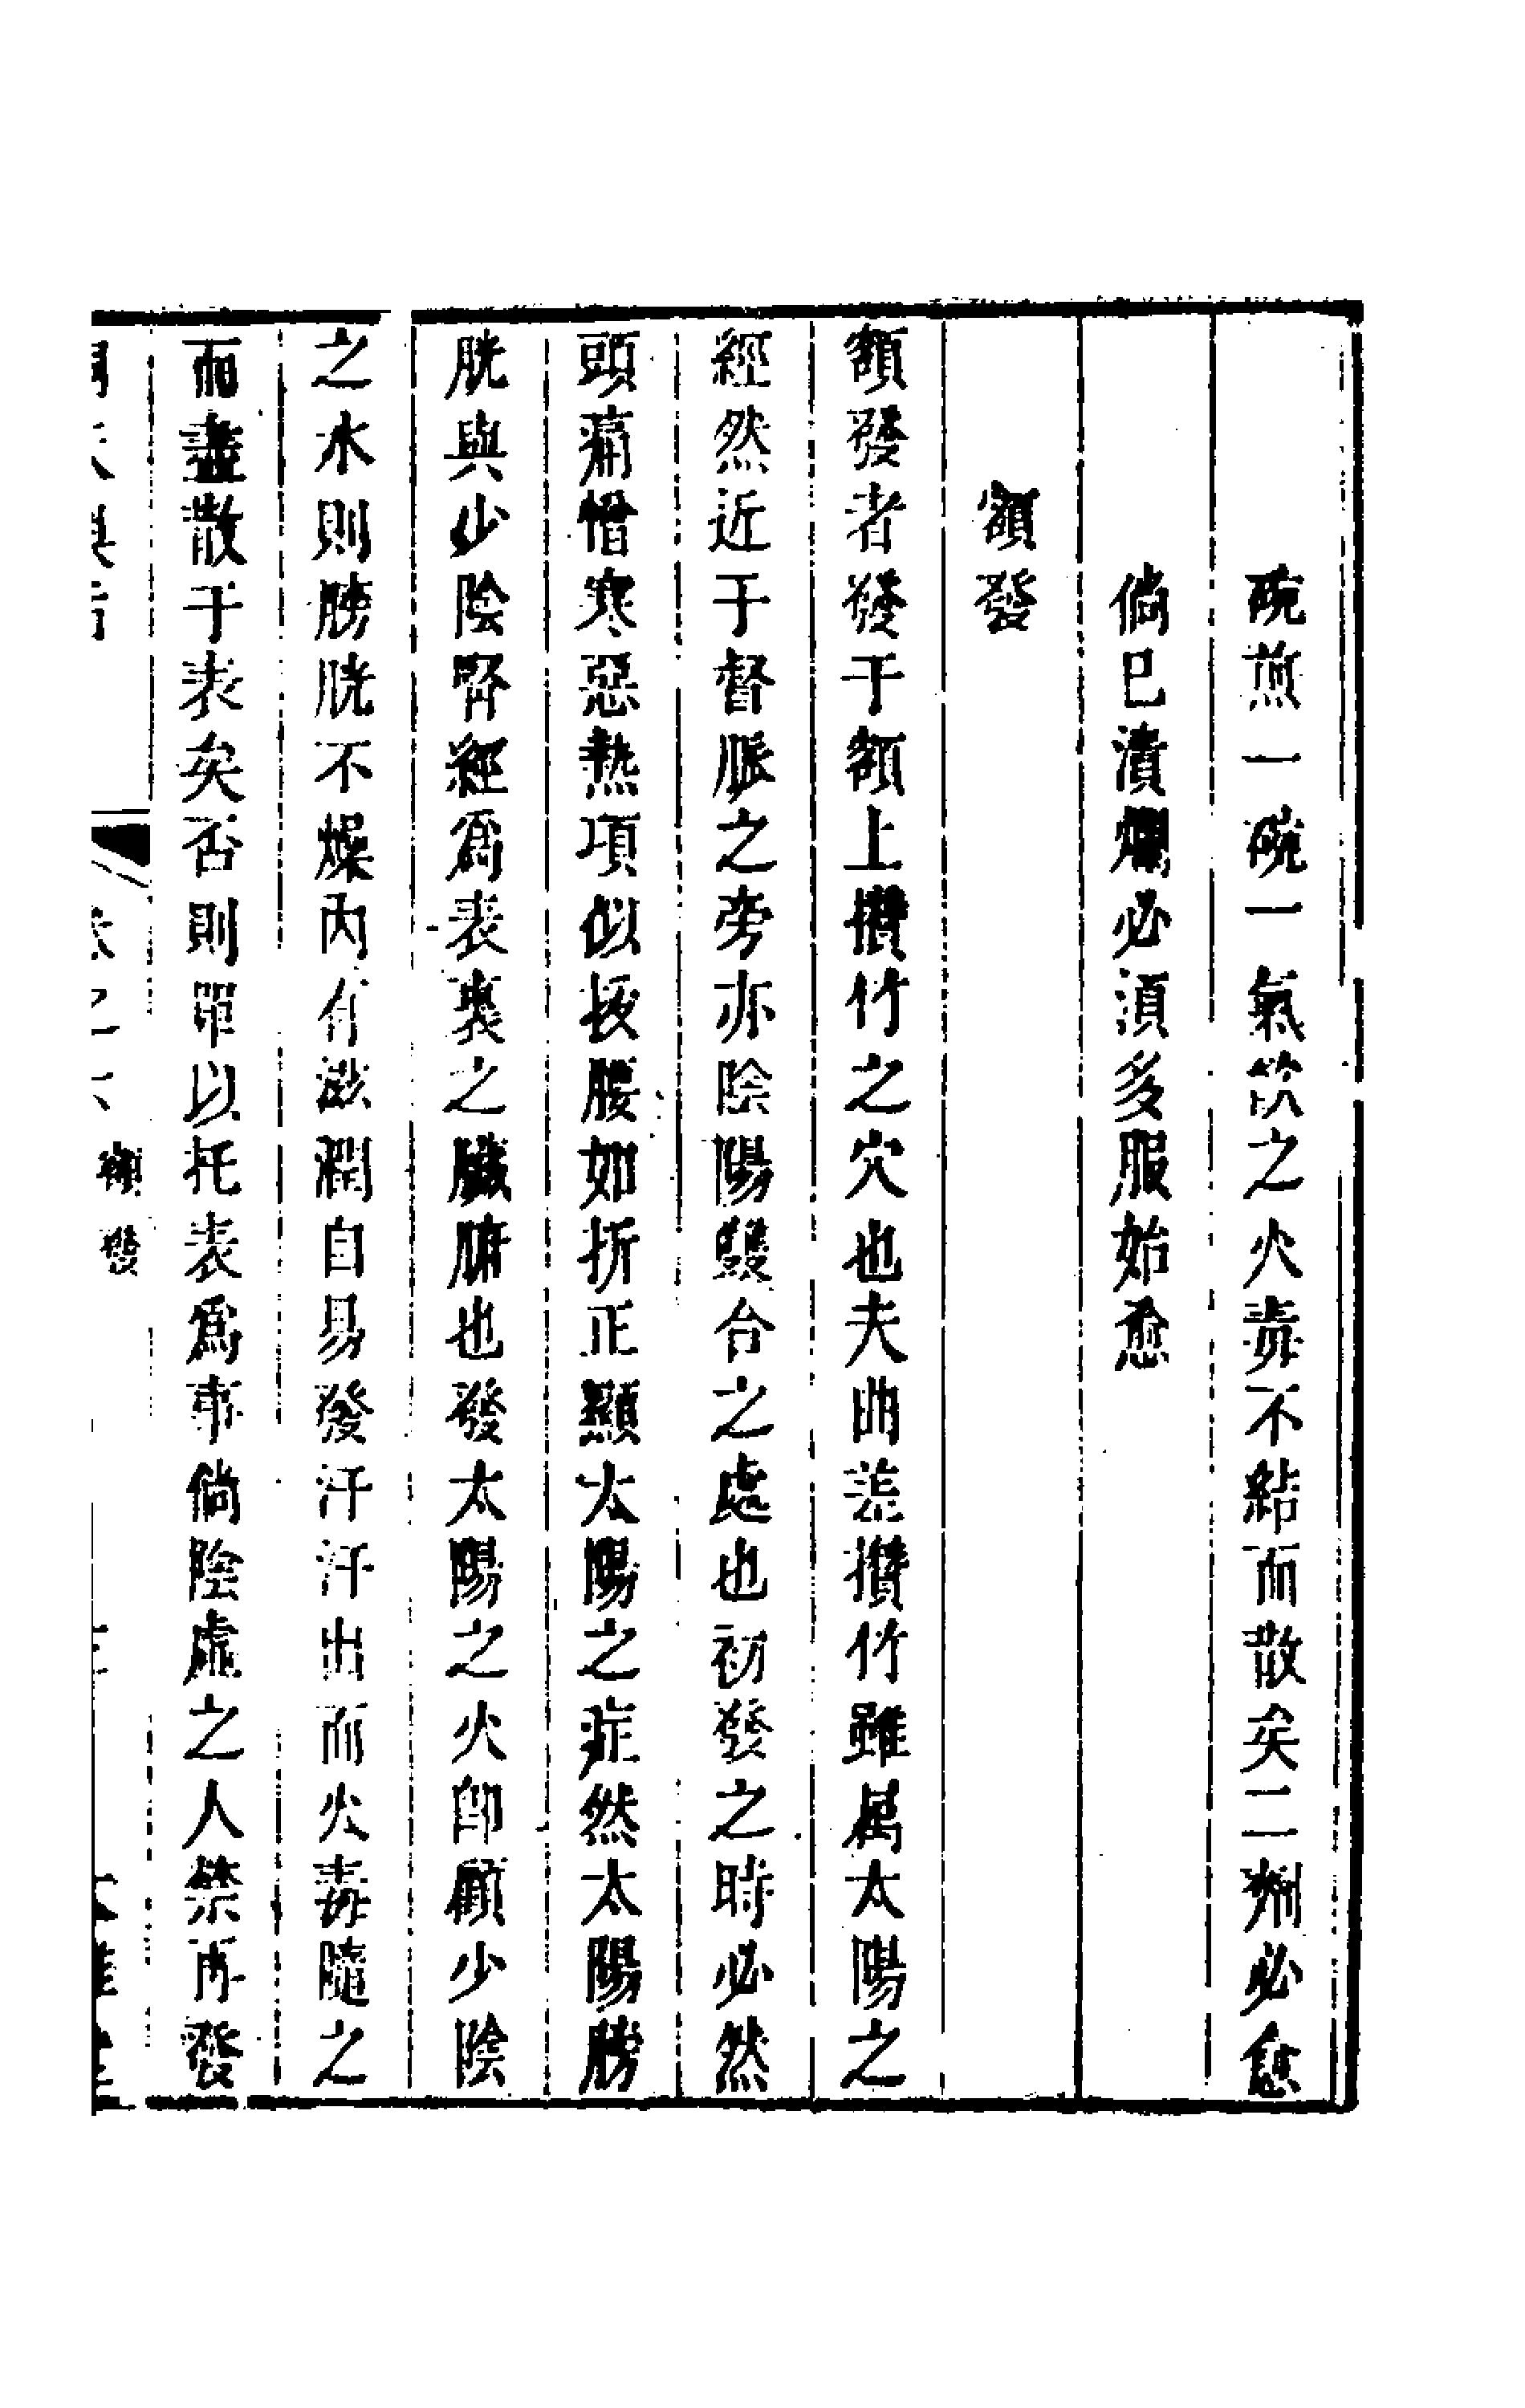 碗煎一碗一氣飲之火毒不結而散矣二劑必愈
倘已潰爛必須多服始愈
額發
額發者發于額上攅竹之穴也夫曲差攅竹雖属太陽之
經然近于督脈之旁亦陰陽雙合之處也初發之時必然
頭痛憎寒惡熱項似拔腰如折正顯太陽之症然太陽膀
胱與少陰腎經爲表裏之臟腑也發太陽之火卽顧少陰
之水則膀胱不燥内有滋潤自易發汗汗出而火毒隨之
而盡散于表矣否則單以托表爲事倘陰虛之人禁再發
額發